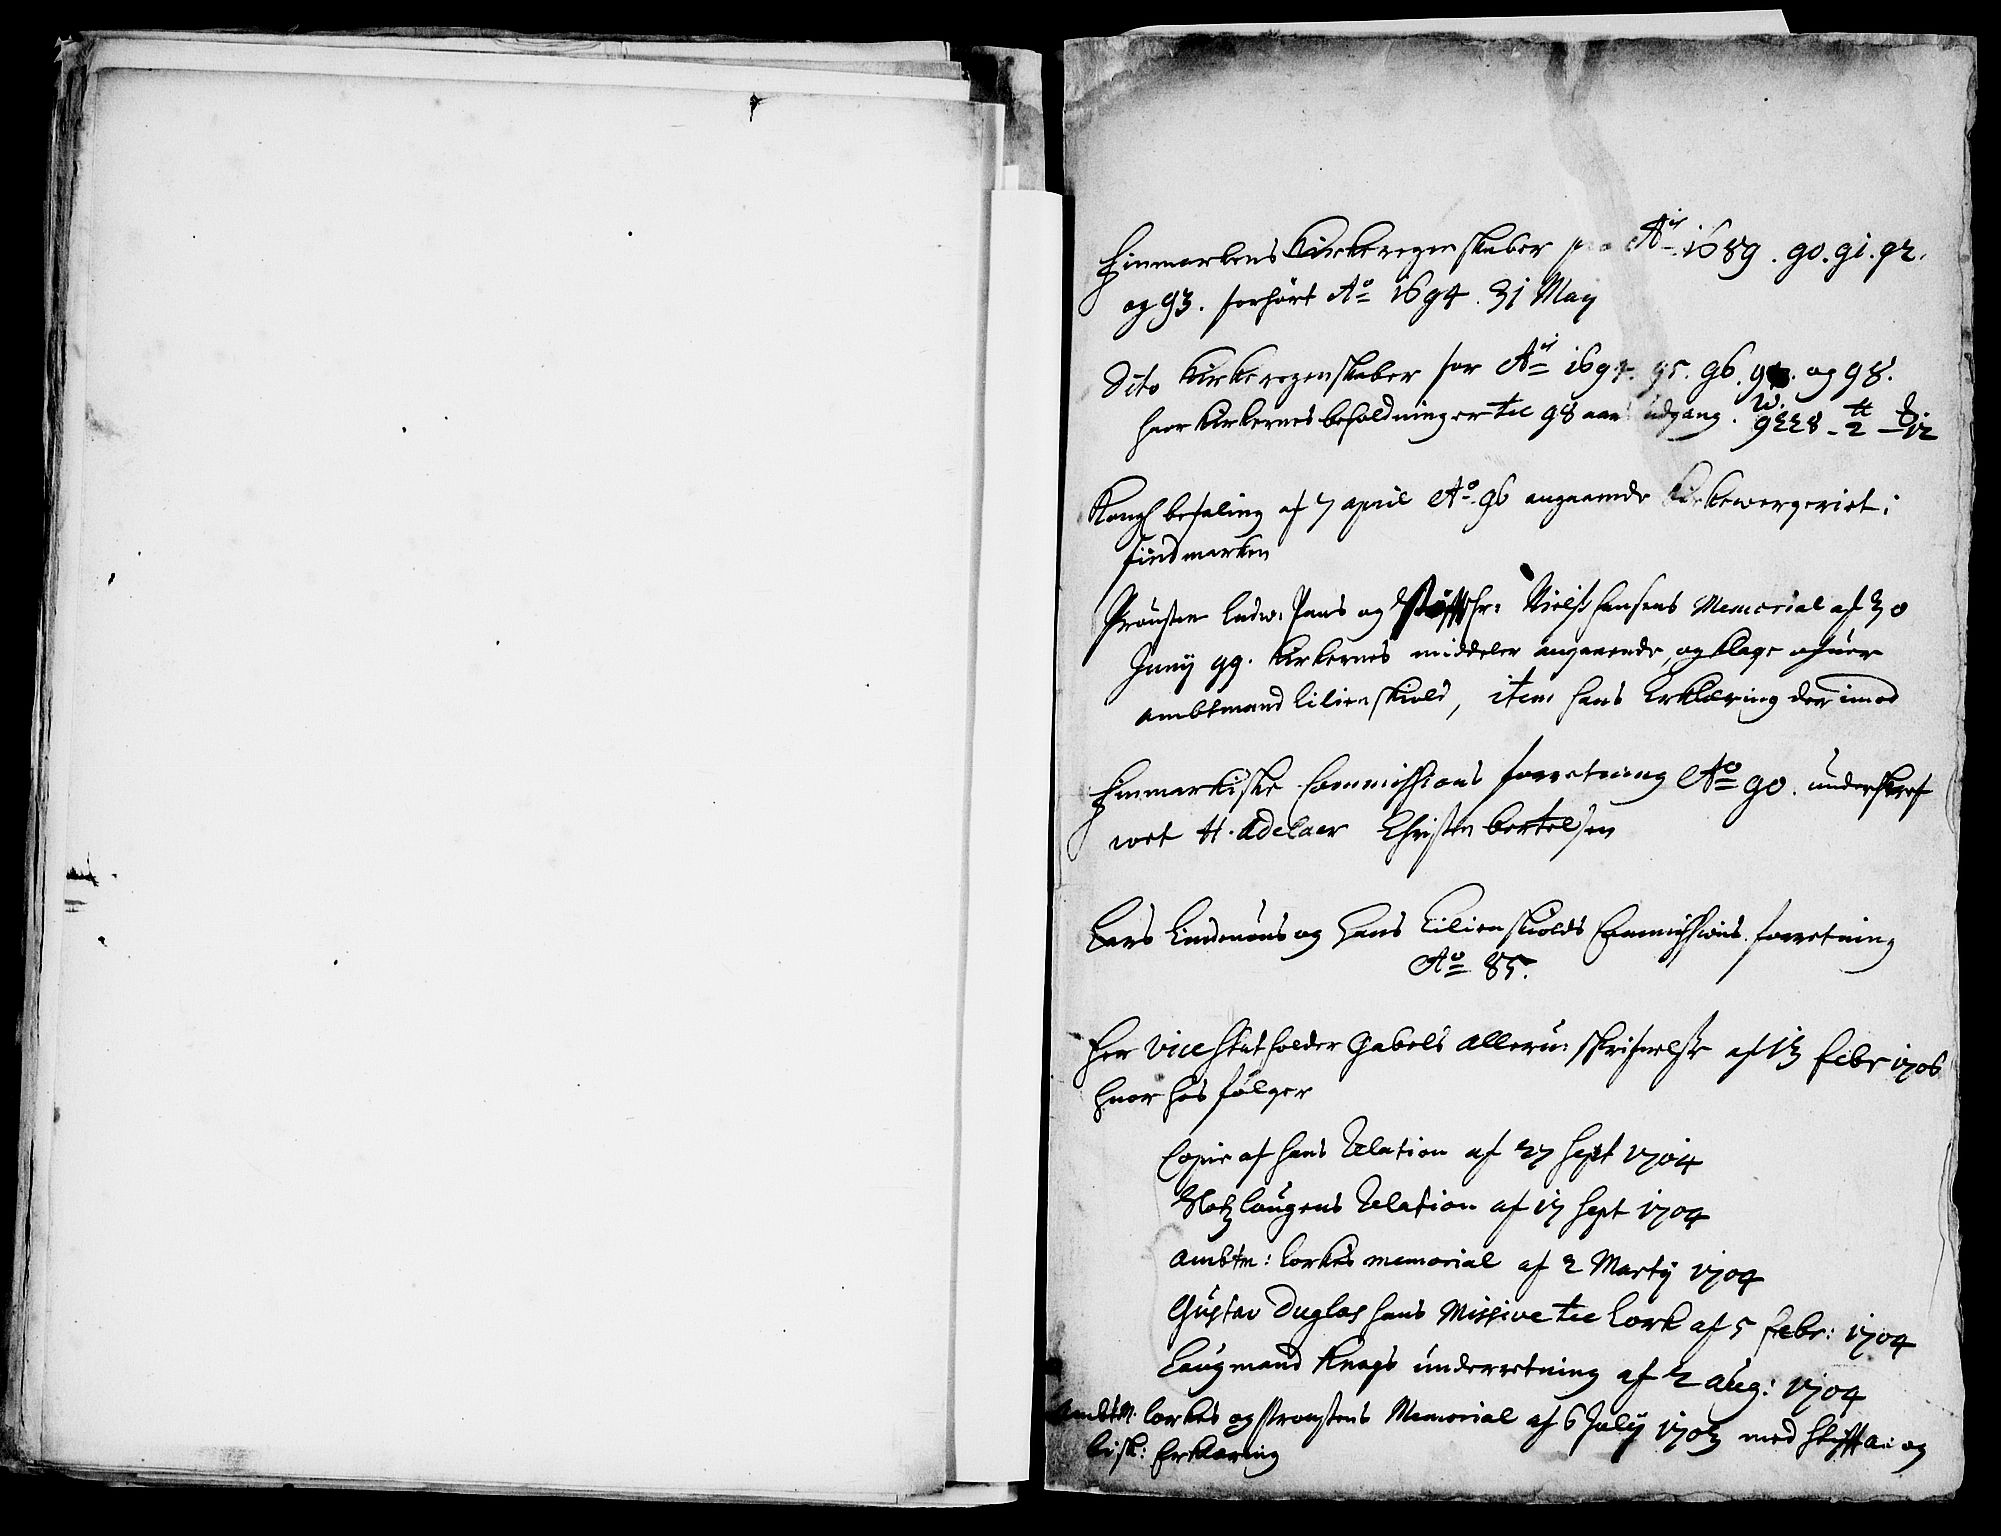 Finmarkens Kirkeregenskaber pro Aⁱˢ 1689. 90. 91. 92.
og 93. forhört Aº 1694. 31 May
Dito Kirkeregenskaber for Aⁱˢ 1694. 95. 96. 97. og 98.
hvor Kirkernes beholdninger til 98 aars udgang. 9228 - 2 - 12
Kongl befaling af 7 april Aº 96 angaaende Kirkewergeriet i
Findmarken
Prousten Ludw. Paus og Hr: Nielss Hansens Memorial af 30
Junÿ 99. Kirkernes middeler angaaende, og klage ofuer
ambtmand Lilienskiold, item hans Erklæring der imod
Finmarkiske Commissions forretning Aº 90. underskref
vet H. Adelaer Christen bertelsen
Lars Lindenous og Hans Lilienskiolds Commissions forretning
Aº 85.
Her Vice Statholder Gabels alleru: skrifuelse af 13 febr 1706
hvor hos fölger
Copie af hans Relation af 27 Sept 1704
Slotzlougens Relation af 17 Sept 1704
ambtm: Lorkes memorial af 2 Martÿ 1704
Gustav Duglas hans Missive til Lork af 5 febr: 1704
Laugmand Knags underretning af 2 aug: 1704
ambtm. Lorkes og Proustens Memorial af 6 Julÿ 1703 med Stifft a: og
bisk: Erklaring